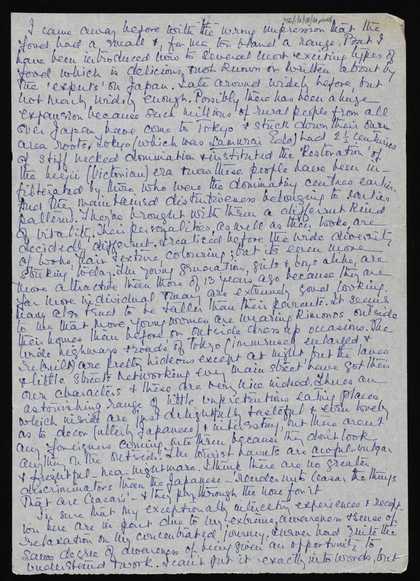 I came away before with the wrong impression that the
food had a small &, for me too bland a range. But I
have been introduced now to several most exciting types of
food which is delicious, not known or written about by
the 'experts' on Japan. I ate around widely before, but
not nearly widely enough. Possibly there has been a huge
expansion because such millions of rural people from all
over Japan have come to Tokyo & stuck down their own
area roots. Tokyo (which was Samurai Edo) had 2½ centuries
of stiff necked domination & instituted the Restoration of
the Meiji (Victorian) era & was those people have been in-
filtrated by those who were the dominating centres earlier
and the maintained distinctiveness belonging to earlier
patterns. They've brought with them a different kind
of vitality. Their personalities, as well as their looks are
decidedly different. I realised before the wide diversity
of looks, hair texture, colouring; but its even more
striking today. The young generation, girls & boys alike, are
more attractive than those of 13 years ago because they are
far more individual & many are extremely good looking.
Many also tend to be taller than their parents. It seems
to me that more young women are wearing Kimonos outside
their homes than before on outside dress up occasions. The
wide highways & roads of Tokyo (immensely enlarged &
rebuilt) are pretty hideous except at night but the lanes
& little streets networking every main street have got their
own characters & these are very nice indeed. There's an
astonishing range of little unpretentious eating places
which inside are just delightfully & tasteful & even lovely
as to decor (utterly Japanese) & interesting, but there aren't
any foreigners coming into them because they don't look
anything on the outside. The tourist haunts are awful, vulgar
& frightful - near nightmare. I think there are no greater
discriminators than the Japanese - render unto Ceasar the things
that are Ceasar's - & they pay through the nose for it
I'm sure that my exceptionally interesting experiences & recept-
ion here are in part due to my extreme awareness & sense of
relaxation on my concentrated journey, answer and quite the
same degree of awareness of being given an opportunity to
understand & work. I can't put it exactly into words, but